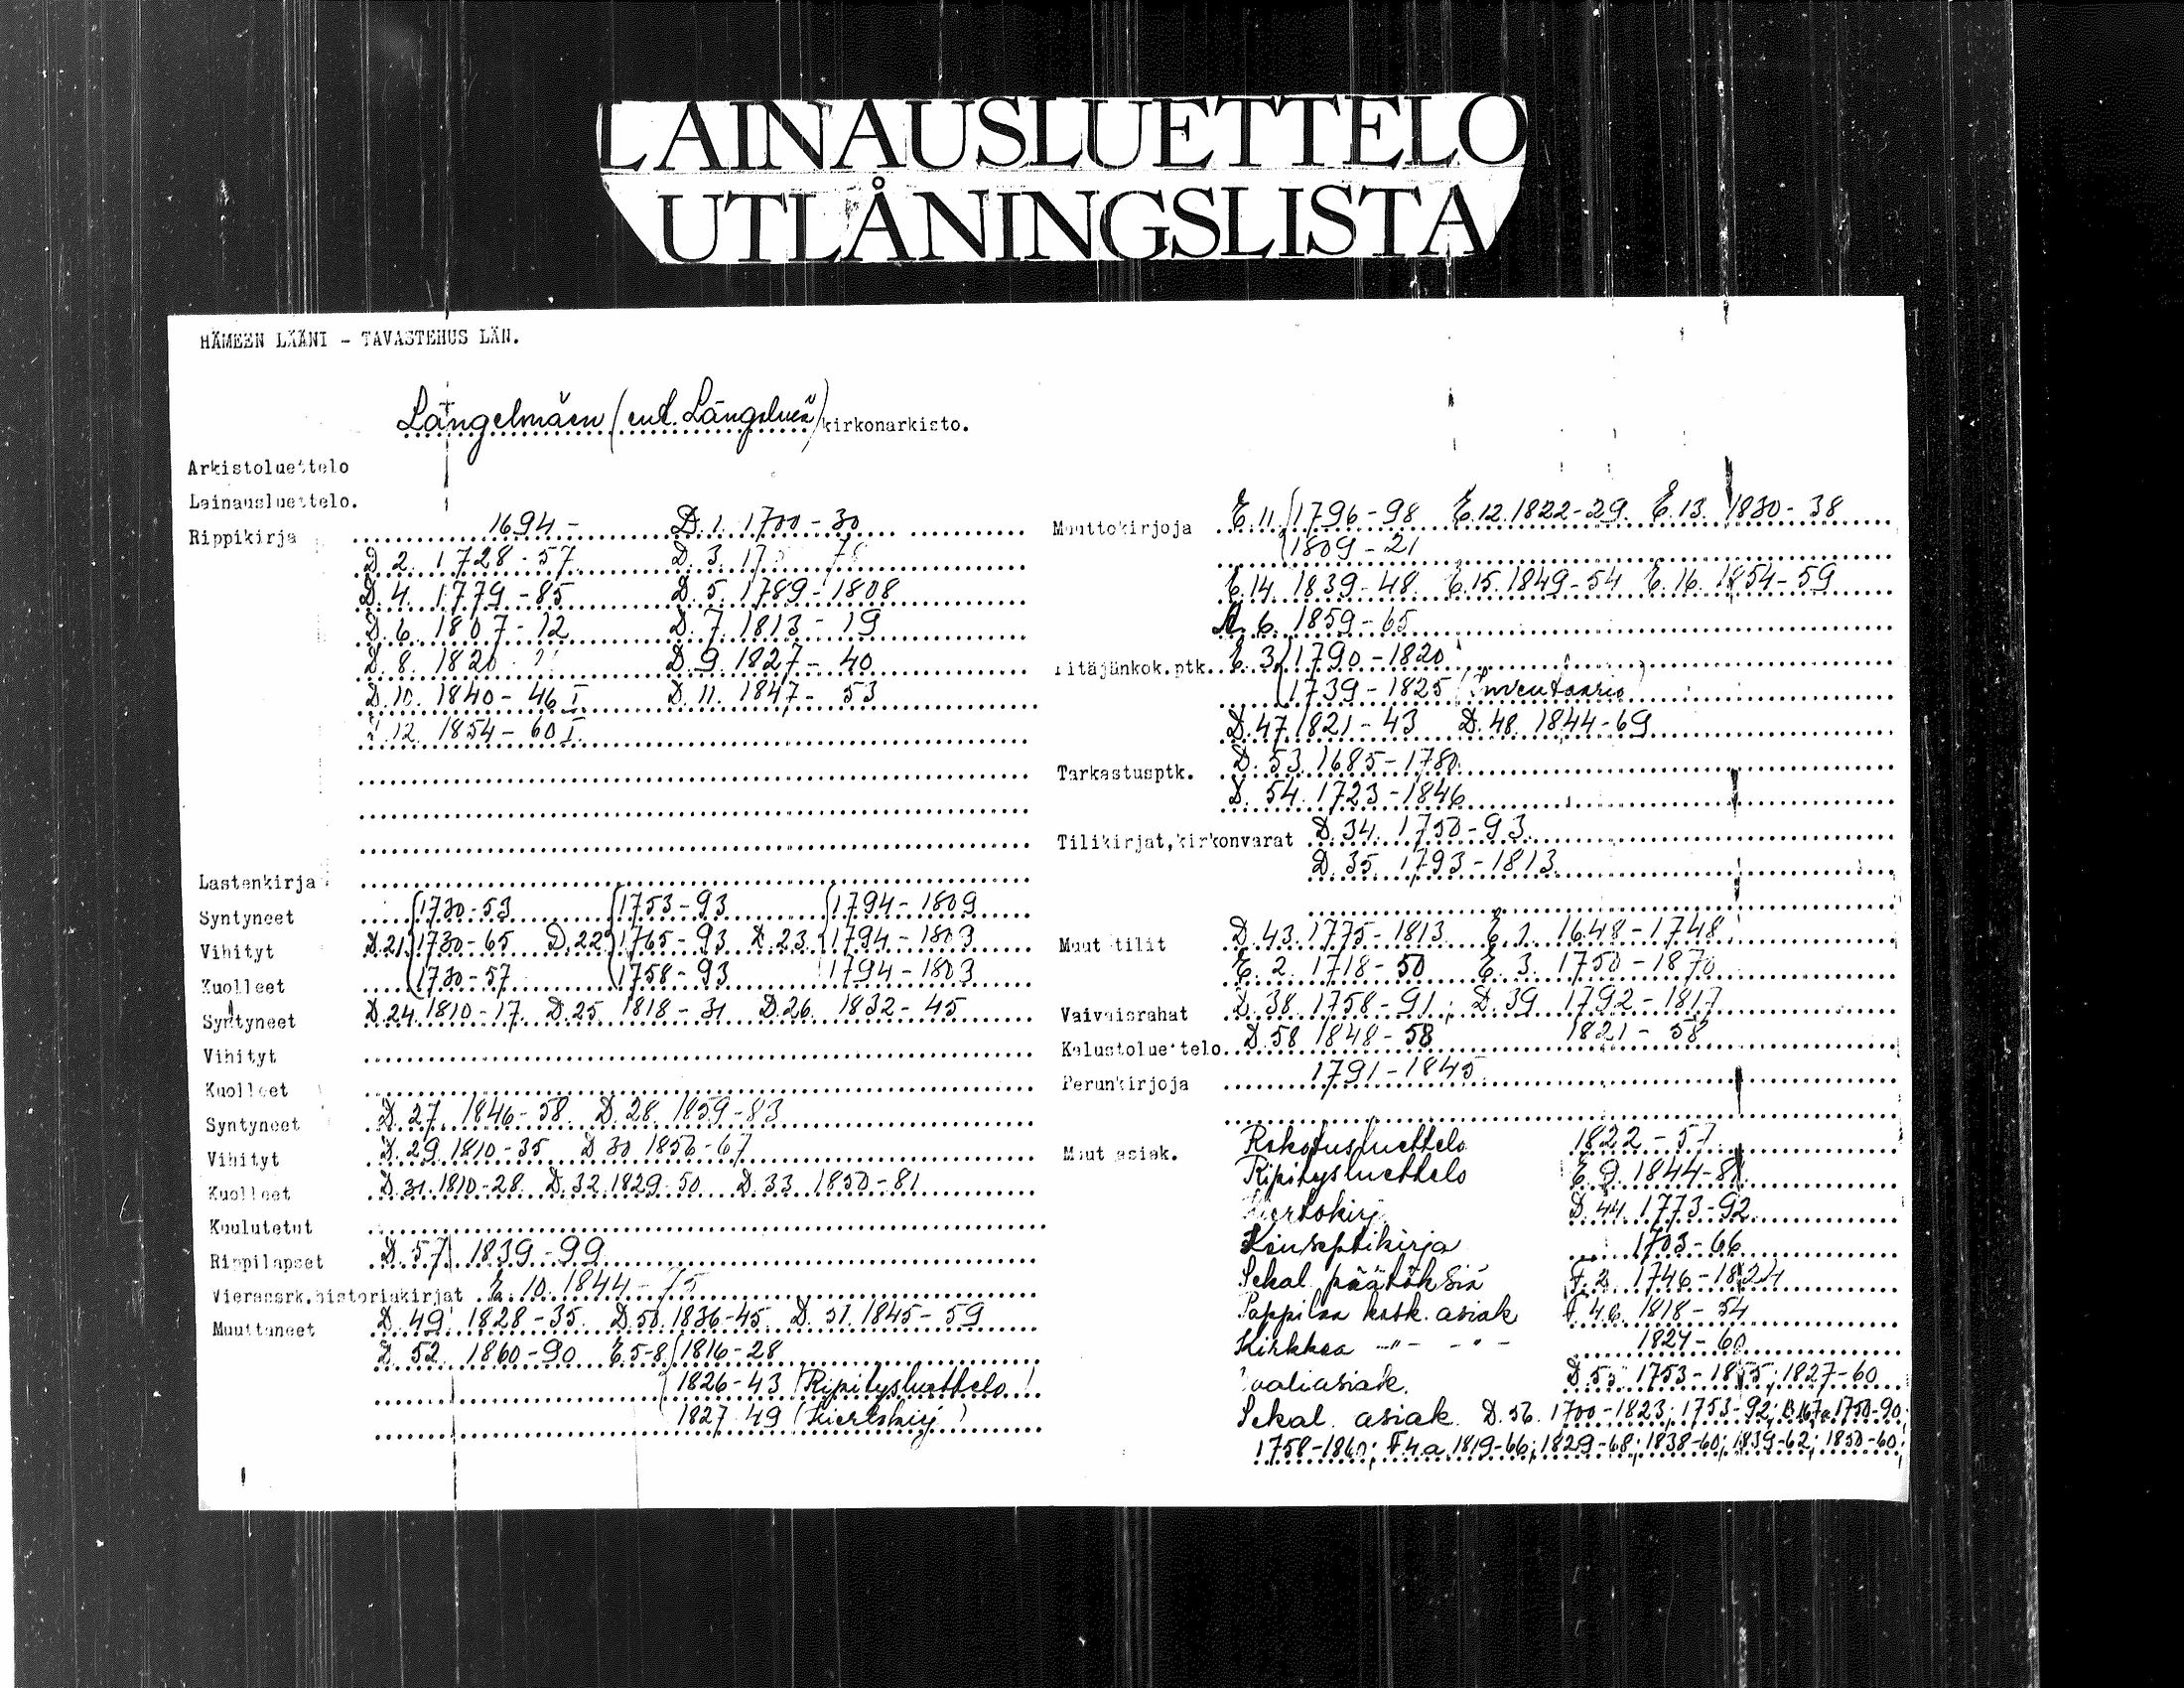 LAINAUSLUETTELO
UTLÅNINGSLISTA
HÄMEEN LÄÄNI - TAVASTEHUS LÄN.
Längelmäen (ent. Längelmä) kirkonarkisto.
Arkistoluettelo
Lainausluettelo.
Rippikirja 1694 - D. 1. 1700 - 30
D. 2. 1728 - 57 D. 3.
D. 4. 1779 - 85 D. 5. 1789 - 1808
D. 6. 1807 - 12 D. 7. 1813 - 19
D. 8. 1820 D. 9. 1827 - 40
D. 10. 1840 - 46 I D. 11. 1847 - 53
12. 1854 - 60 I
Lastenkirja
Syntyneet 1730-53 1753-93 1794-1809
Vihityt D.21 1730-65 D.22 1765-93 D.23 1794-1803
Kuolleet 1730-57 1758-93 1794-1803
Syntyneet D.24 1810-17 D.25 1818-31 D.26 1832-45
Vihityt
Kuolleet
Syntyneet D.27. 1846-58 D.28. 1859-83
Vihityt D.29 1810-35 D 30 1856-67
Kuolleet D.31. 1810-28 D.32. 1829-50 D.33 1850-81
Kuulutetut
Rippilapset D.57 1839-99
Vierassrk.historiakirjat E.10. 1844-75
Muuttaneet D.49 1828-35 D.50. 1836-45 D.51. 1845-59
D. 52 1860-90 E.5-8 1816-28
1826-43 (Ripitysluettelo)
1827-49 (Kiertokirj.)
Muuttokirjoja E.11. 1796-98 E.12. 1822-29 E.13. 1830-38
1809-21
E.14. 1839-48 E.15. 1849-54 E.16. 1854-59
A. 6. 1859-65
Pitäjänkok.ptk. E. 3. 1790-1820
1739-1825 (Inventaario)
D.47. 1821-43 D.48. 1844-69
Tarkastusptk. D. 53. 1685-1780
D. 54. 1723-1846
Tilikirjat,kirkonvarat D. 34. 1750-93
D. 35. 1793-1813
Muut tilit D.43. 1775-1813 E. 1. 1648-1748
E. 2. 1718-50 E. 3. 1750-1870
Vaivaisrahat D. 38. 1758-91; D.39 1792-1817
Kalustoluettelo D.58 1848-58 1821-58
Perunkirjoja 1791-1845
Muut asiak. Rokotusluettelo 1822-57
Ripitysluettelo E. 9. 1844-81
Kiertokirj. D.44. 1773-92
Konseptikirja 1703-66
Sekal. päätöksiä F.2. 1746-1824
Pappilaa kosk. asiak F.4b. 1818-54
Kirkkoa -"- -"- 1824-60
Vaaliasiak. D.55 1753-1855; 1827-60
Sekal. asiak. D.56. 1700-1823; 1753-92; B.167a 1750-90;
1758-1860; F.4.a. 1819-66; 1829-68; 1838-60; 1839-62; 1850-60;